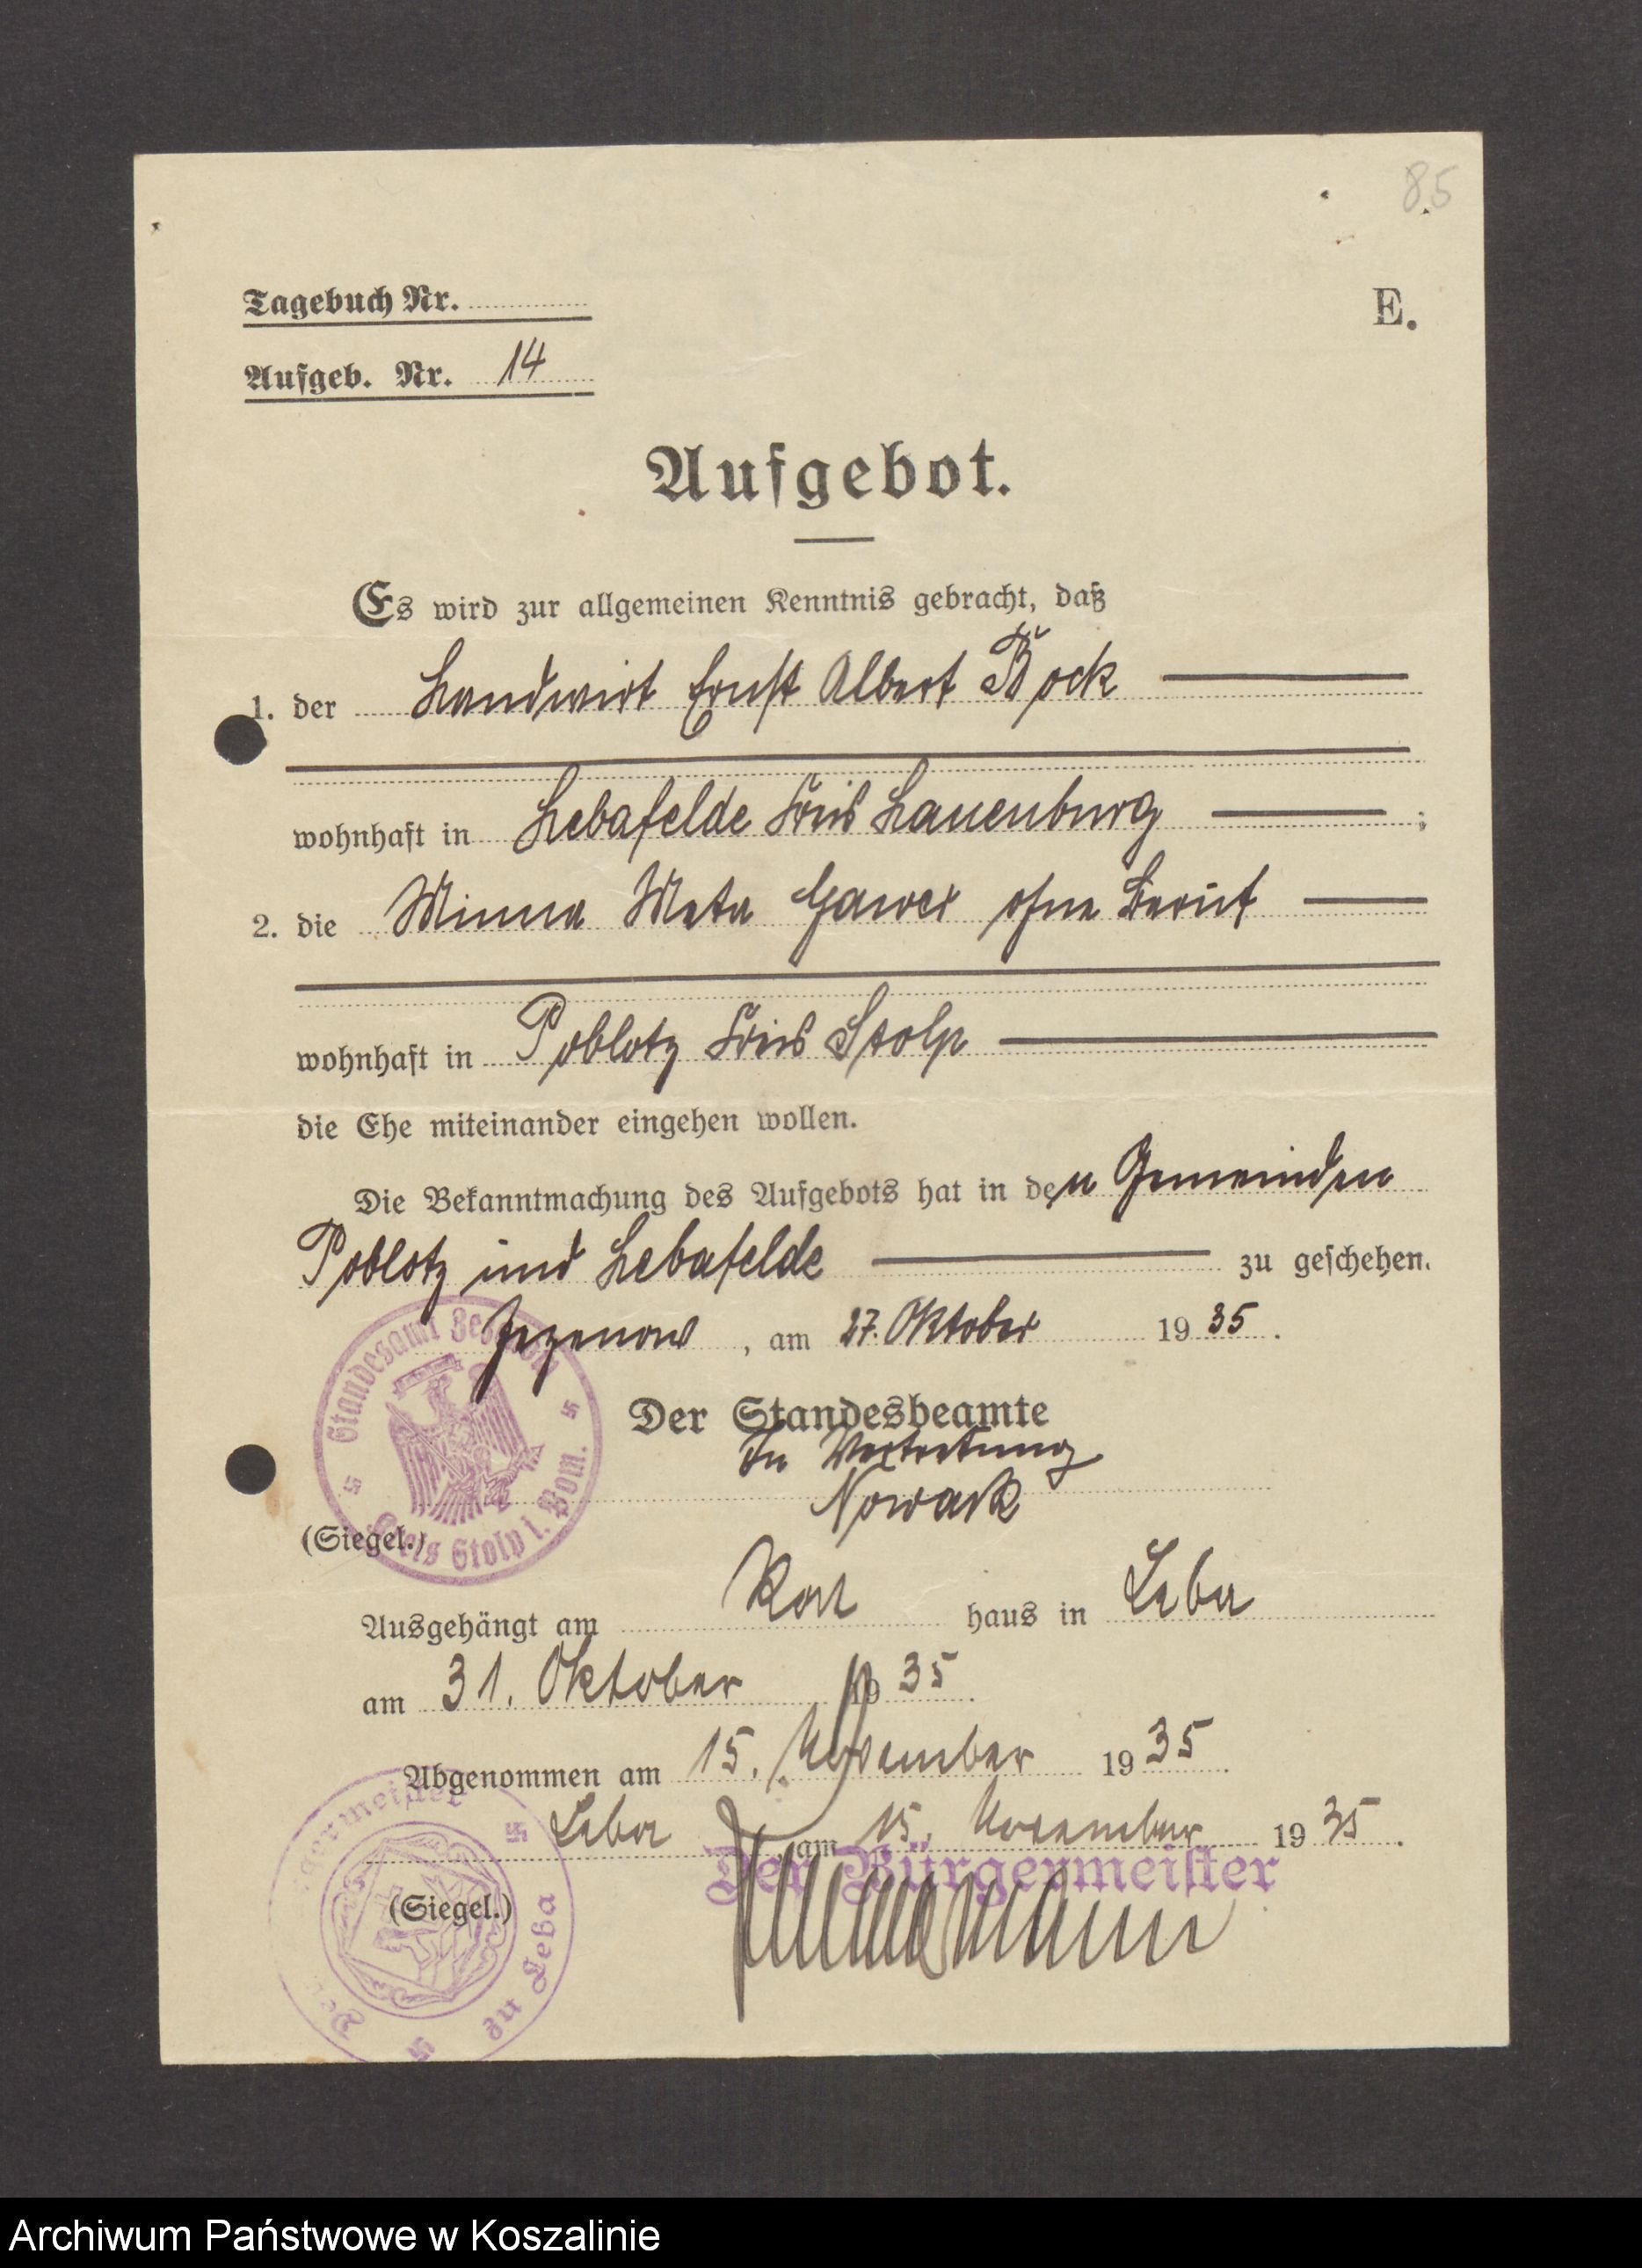 85
Tagebuch Nr.
E.
Aufgeb. Nr. 14
Aufgebot.
Es wird zur allgemeinen Kenntnis gebracht, daß
1. der Landwirt Ernst Albert Bock
wohnhaft in Lebafelde Kreis Lauenburg ;
2. die Minna Meta Gawer ohne Beruf
wohnhaft in Poblotz Kreis Stolp
die Ehe miteinander eingehen wollen.
Die Bekanntmachung des Aufgebots hat in den Gemeinden
Poblotz und Lebafelde zu geschehen.
Zezenow, am 27. Oktober 1935.
Standesamt Zezenow
Kreis Stolp i. Pom.
Der Standesbeamte
In Vertretung
Nowack
(Siegel.)
Ausgehängt am Rat haus in Leba
am 31. Oktober 1935.
Abgenommen am 15. November 1935.
Leba, am 15. November 1935.
Der Bürgermeister
(Siegel.)
Der Bürgermeister
zu Leba
Archiwum Państwowe w Koszalinie